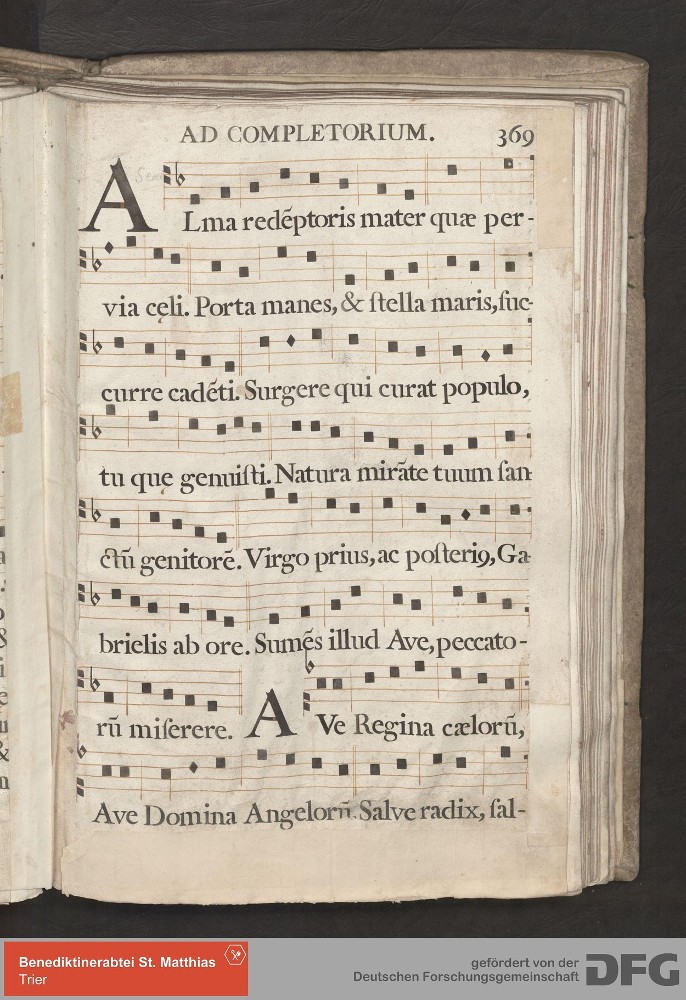 AD COMPLETORIUM. 369
ALma redẽptoris mater quæ per-
via cęli. Porta manes, & ſtella maris, ſuc-
curre cadẽti. Surgere qui curat populo,
tu que genuiſti. Natura mirãte tuum ſan-
ctũ genitorẽ. Virgo prius, ac poſteriꝰ, Ga-
brielis ab ore. Sumẽs illud Ave, peccato-
rũ miſerere. AVe Regina cælorũ,
Ave Domina Angelorũ. Salve radix, ſal-
Benediktinerabtei St. Matthias
Trier
gefördert von der
Deutschen Forschungsgemeinschaft
DFG